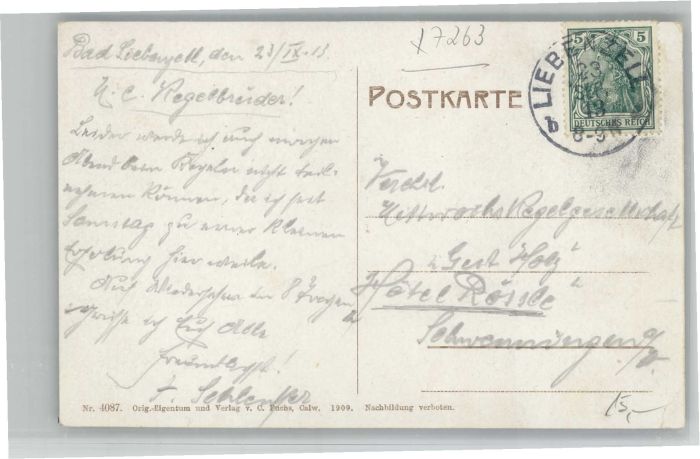 x7263
Bad Liebenzell, den 23/IX.13.
N. C. Kegelbrüder!
Leider werde ich auch morgen
Abend beim Kegeln nicht teil-
nehmen können, da ich seit
Samstag zu einer kleinen
Erholung hier weile.
Auf Wiedersehen in 8 Tagen
grüsse ich Euch Alle
freundlichst!
F. Schlenker
POSTKARTE
LIEBENZELL
23
SEP
13
8-9N.
b
5 5
DEUTSCHES REICH
Verehrl.
Mittwochs Kegelgesellschaft
„Gut Holz“
Hôtel Rössle
Schwenningen a/N.
Nr. 4087. Orig.-Eigentum und Verlag v. C. Fuchs, Calw. 1909. Nachbildung verboten.
15,-